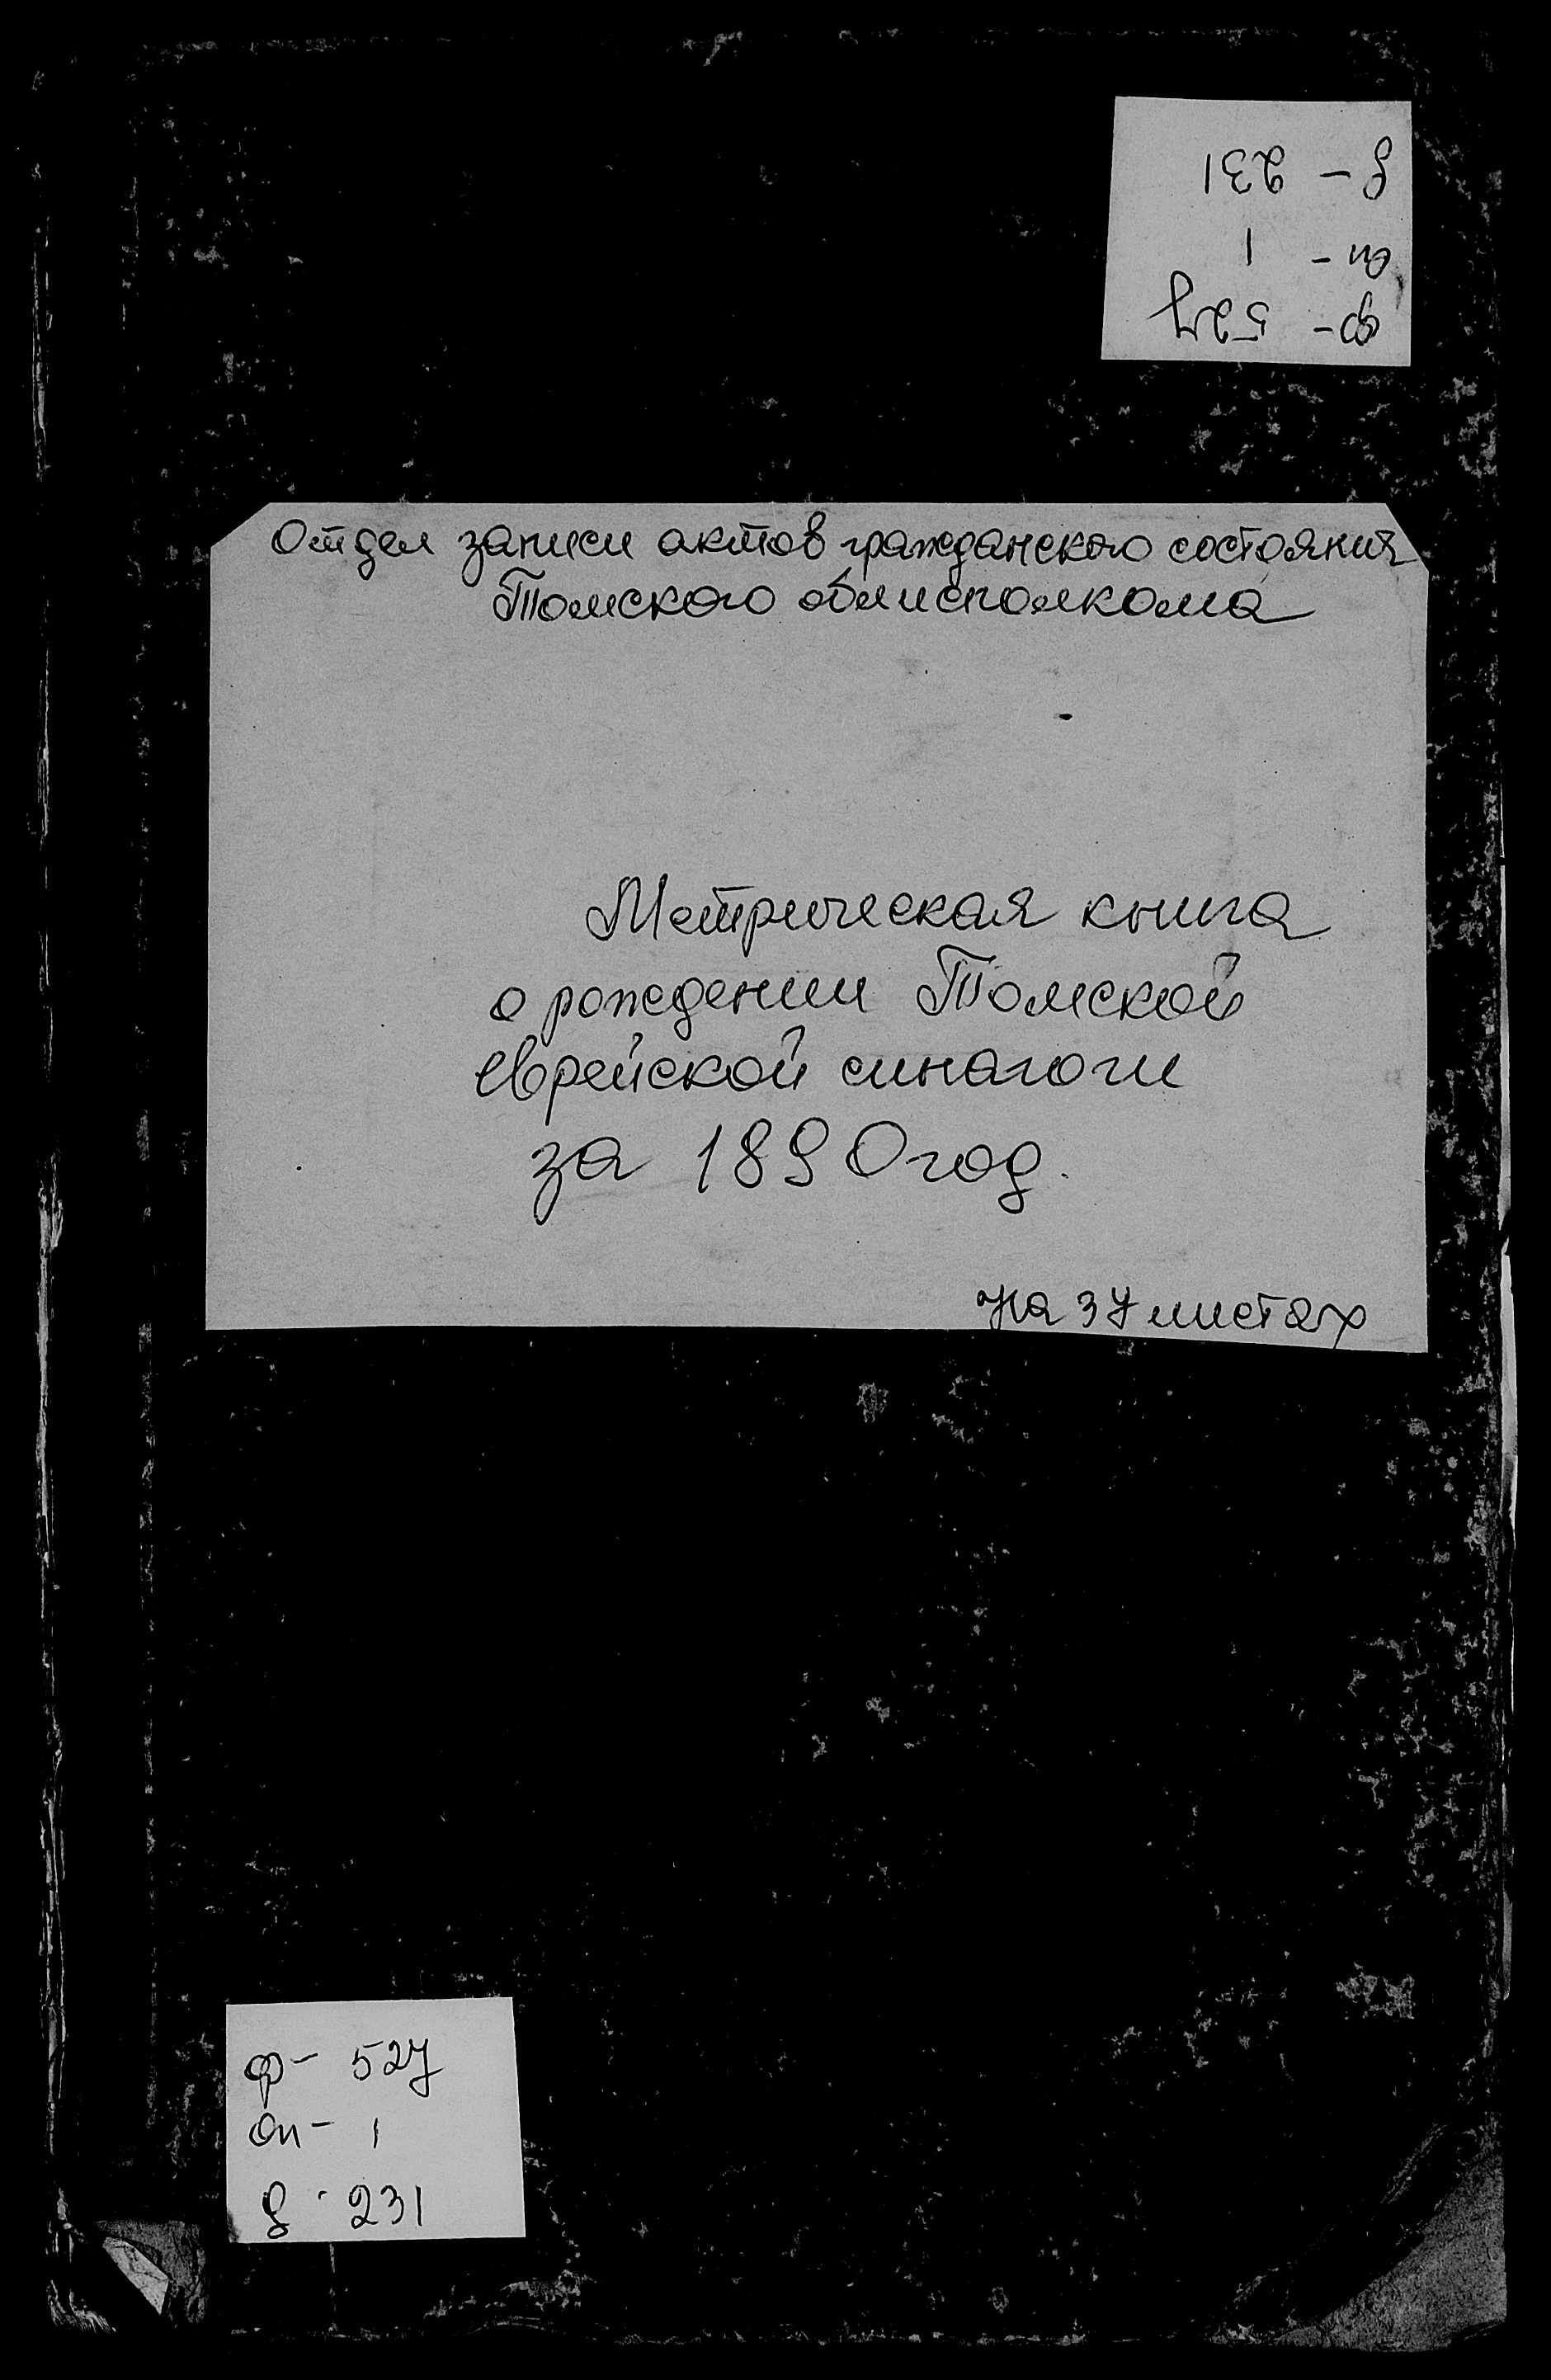 ф- 527
оп- 1
д- 231
Отдел записи актов гражданского состояния
Томского облисполкома
Метрическая книга
о рождении Томской
еврейской синагоги
за 1890 год.
на 37 листах
ф- 527
оп- 1
д- 231